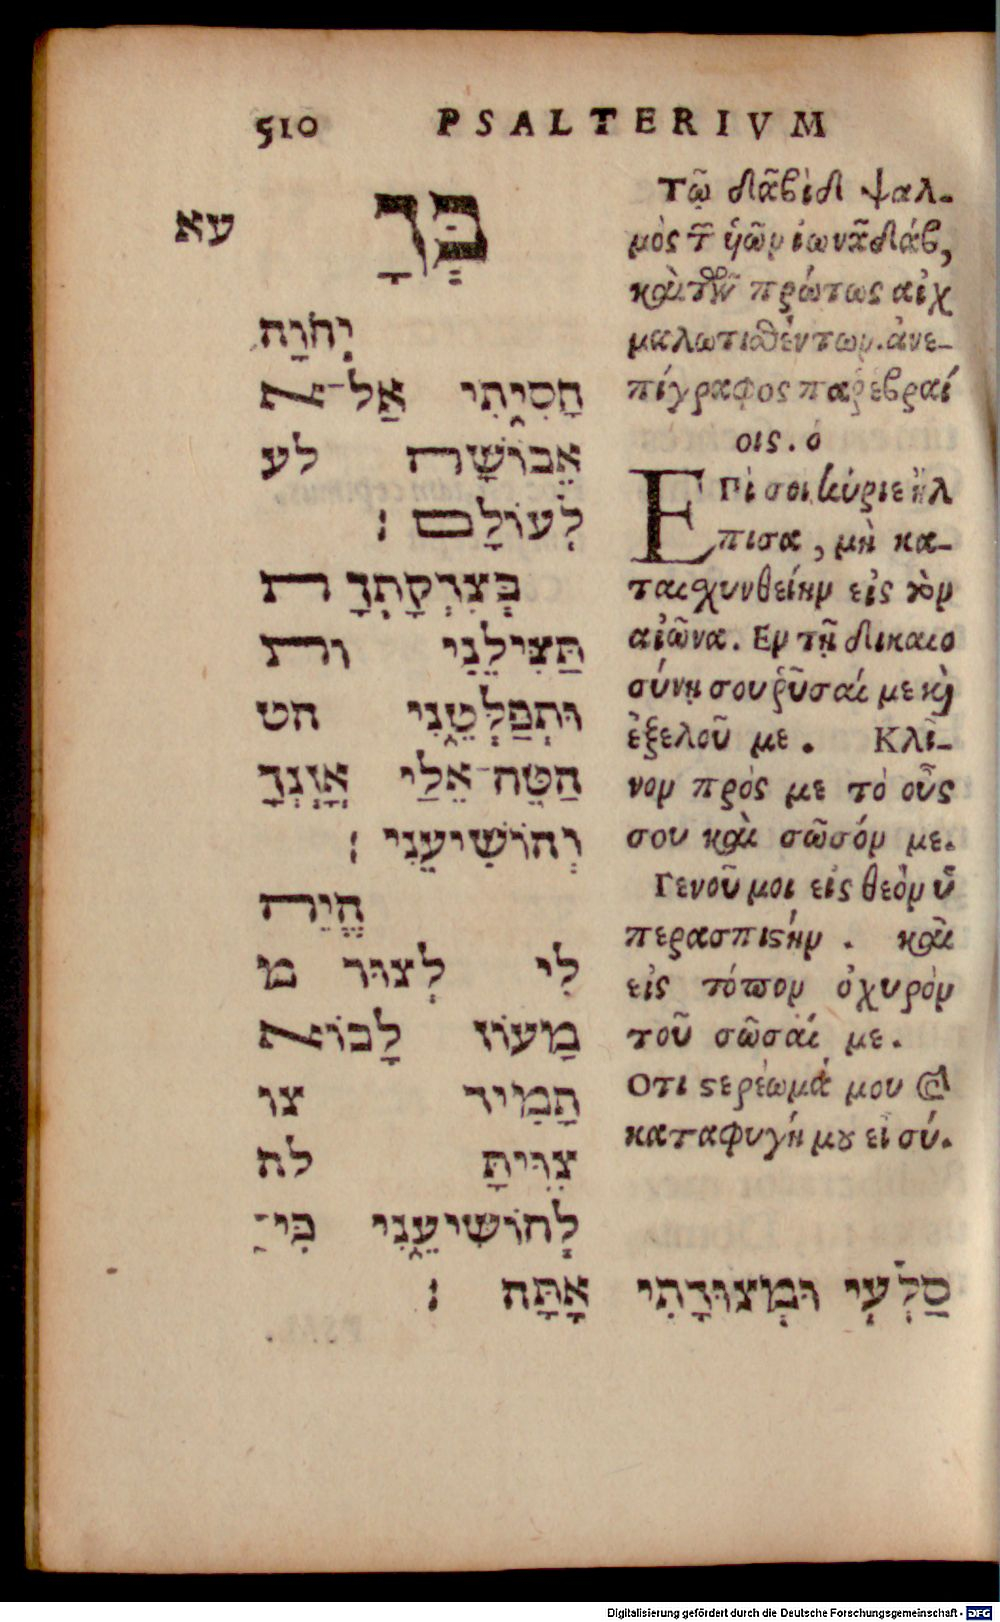 510 PSALTERIVM
עא
בְּךָ
יְהוָה
חָסִיתִי אַל־א
אֵבוֹשָׁה לע
לְעוֹלָם׃
בְּצִדְקָתְךָ ת
תַּצִּילֵנִי ות
וּתְפַלְּטֵנִי הט
הַטֵּה־אֵלַי אָזְנְךָ
וְהוֹשִׁיעֵנִי׃
הֱיֵה
לִי לְצוּר מ
מָעוֹן לָבוֹא
תָּמִיד צו
צִוִּיתָ לה
לְהוֹשִׁיעֵנִי כִּי־
סַלְעִי וּמְצוּדָתִי אָתָּה׃
Τῷ δᾱβὶδ ψαλ-
μὸς τ̄ ὑῶν ἰωνᾱδάβ,
καὶ τῶν πρώτως αἰχ
μαλωτισθέντων. ἀνε-
πίγραφος παρ' ἑβραί
οις. ό
ΕΠὶ σοι κύριε ἤλ
πισα, μὴ κα-
ταισχυνθείην εἰς τὸν
αἰῶνα. Εν τῇ δικαιο
σύνῃ σου ῥῦσαί με κὶ
ἐξελοῦ με. Κλῖ-
νον πρός με τὸ οὖς
σου καὶ σῶσόν με.
Γενοῦ μοι εἰς θεὸν ὑ
περασπιστὴν. καὶ
εἰς τόπον ὀχυρὸν
τοῦ σῶσαί με.
Οτι στερέωμά μου &
καταφυγή μου εἶ σύ.
Digitalisierung gefördert durch die Deutsche Forschungsgemeinschaft - DFG